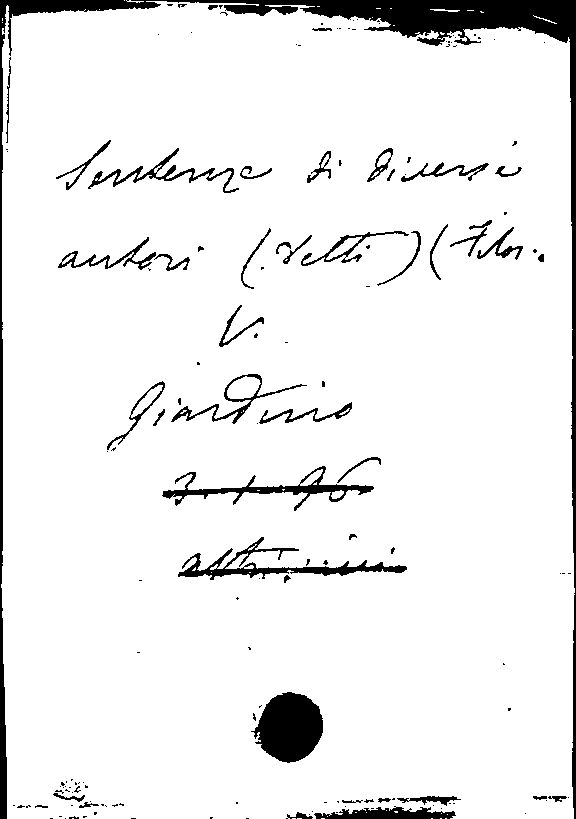 Sentenze di diversi
autori (. Detti) (Filos.
V.
Giardino
3. 1. 96
altri